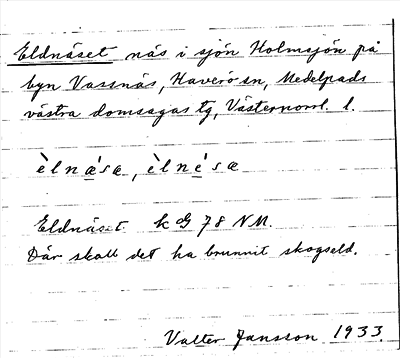 Eldnäset näs i sjön Holmsjön på
byn Vassnäs, Haverö sn, Medelpads
västra domsagas tg, Västernorrl. l.
èlnæ̀sæ, èlnésæ
Eldnäset k G 78 NM.
Där skall det ha brunnit skogseld.
Valter Jansson 1933.